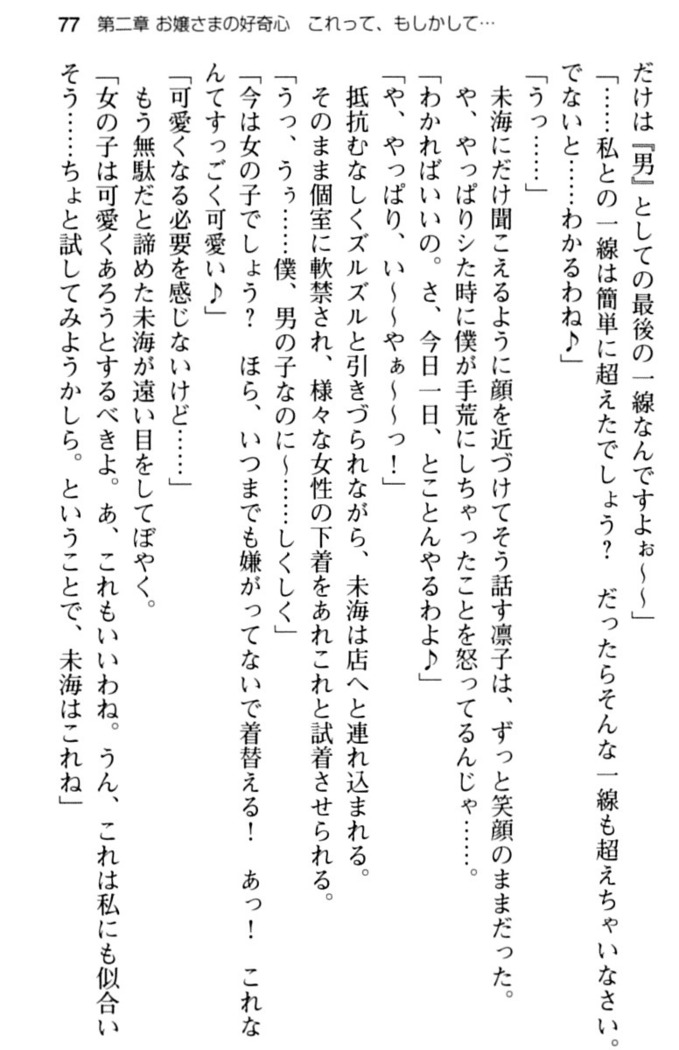 77 第二章 お嬢さまの好奇心 これって、もしかして…
だけは『男』としての最後の一線なんですよぉ～～」
「……私との一線は簡単に超えたでしょう？　だったらそんな一線も超えちゃいなさい。
でないと……わかるわね♪」
「うっ……」
未海にだけ聞こえるように顔を近づけてそう話す凛子は、ずっと笑顔のままだった。
や、やっぱりシた時に僕が手荒にしちゃったことを怒ってるんじゃ……。
「わかればいいの。さ、今日一日、とことんやるわよ♪」
「や、やっぱり、い～～やぁ～～っ！」
抵抗むなしくズルズルと引きづられながら、未海は店へと連れ込まれる。
そのまま個室に軟禁され、様々な女性の下着をあれこれと試着させられる。
「うっ、うぅ……僕、男の子なのに～……しくしく」
「今は女の子でしょう？　ほら、いつまでも嫌がってないで着替える！　あっ！　これな
んてすっごく可愛い♪」
「可愛くなる必要を感じないけど……」
もう無駄だと諦めた未海が遠い目をしてぼやく。
「女の子は可愛くあろうとするべきよ。あ、これもいいわね。うん、これは私にも似合い
そう……ちょと試してみようかしら。ということで、未海はこれね」